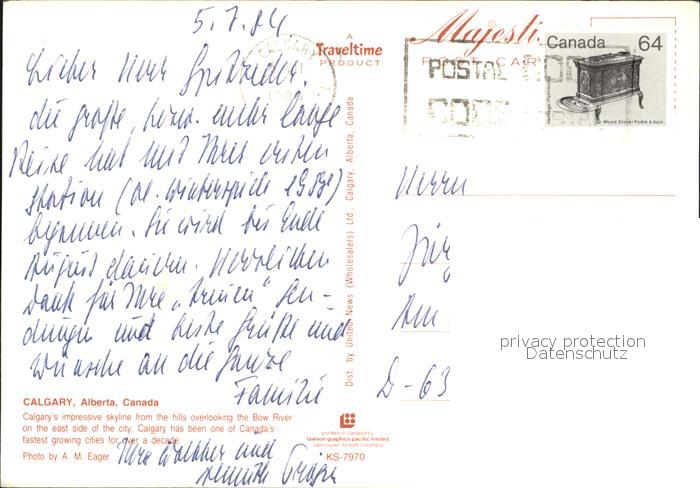 5.7.84
Lieber Herr
die große, bzw. lange
Reise hat mit Ihrer ersten
Station (ol. Winterspiele
begonnen. Sie wird bis Ende
August dauern. Herzlichen
Dank für Ihre „treuen" Sen-
dungen und beste Grüße und
Wünsche an die ganze
Familie
Ihre und
CALGARY, Alberta, Canada
Calgary's impressive skyline from the hills overlooking the Bow River
on the east side of the city. Calgary has been one of Canada's
fastest growing cities for over a decade.
Photo by A. M. Eager
A
Traveltime
PRODUCT
Dist. by United News (Wholesalers) Ltd. Calgary, Alberta, Canada
printed in Canada by
lawson graphics pacific limited
vancouver, british columbia
KS-7970
Majesti
POST CAR
CALGARY
POSTAL
CODE
Canada 64
Wood Stove / Poêle à bois
Herrn
Am
D-63
privacy protection
Datenschutz